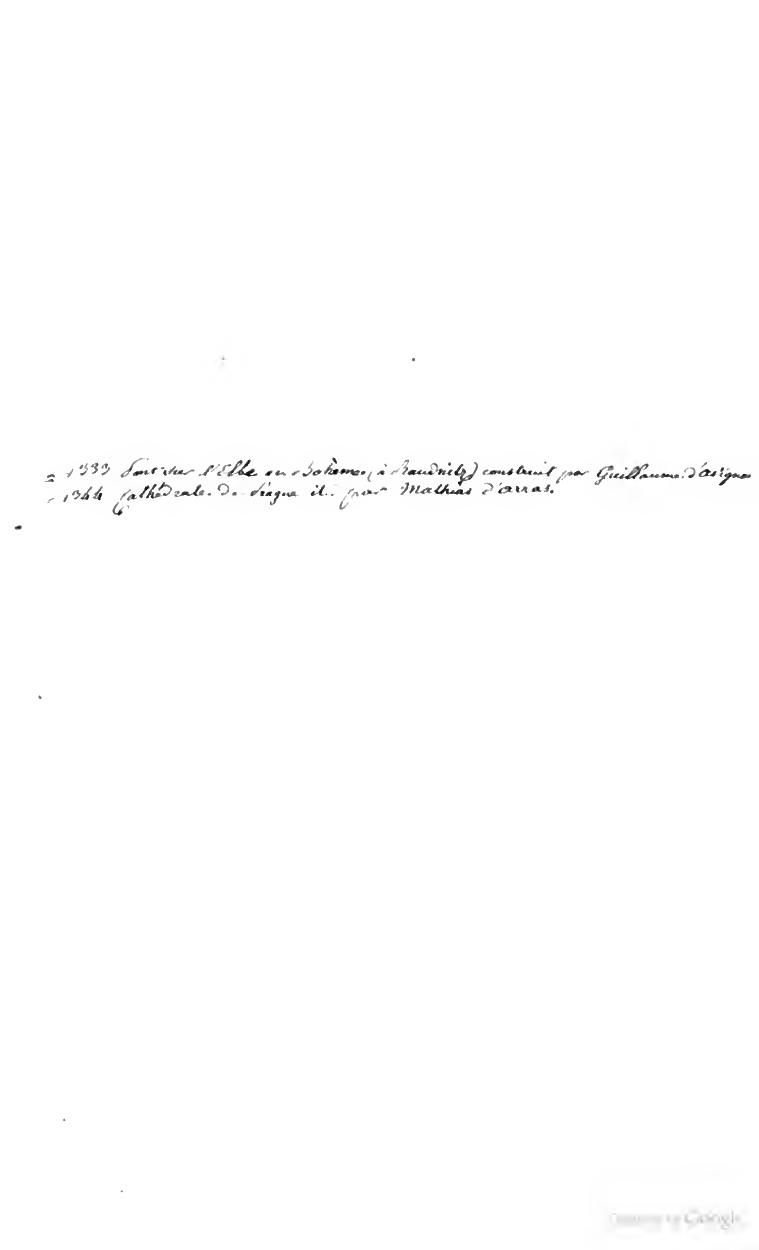 = 1333 Pont sur l'Elbe en Bohème (à Raudnitz) construit par Guillaume d'avignon
- 1344 Cathédrale De Prague id. par Mathias D'arras.
Digitized by Google